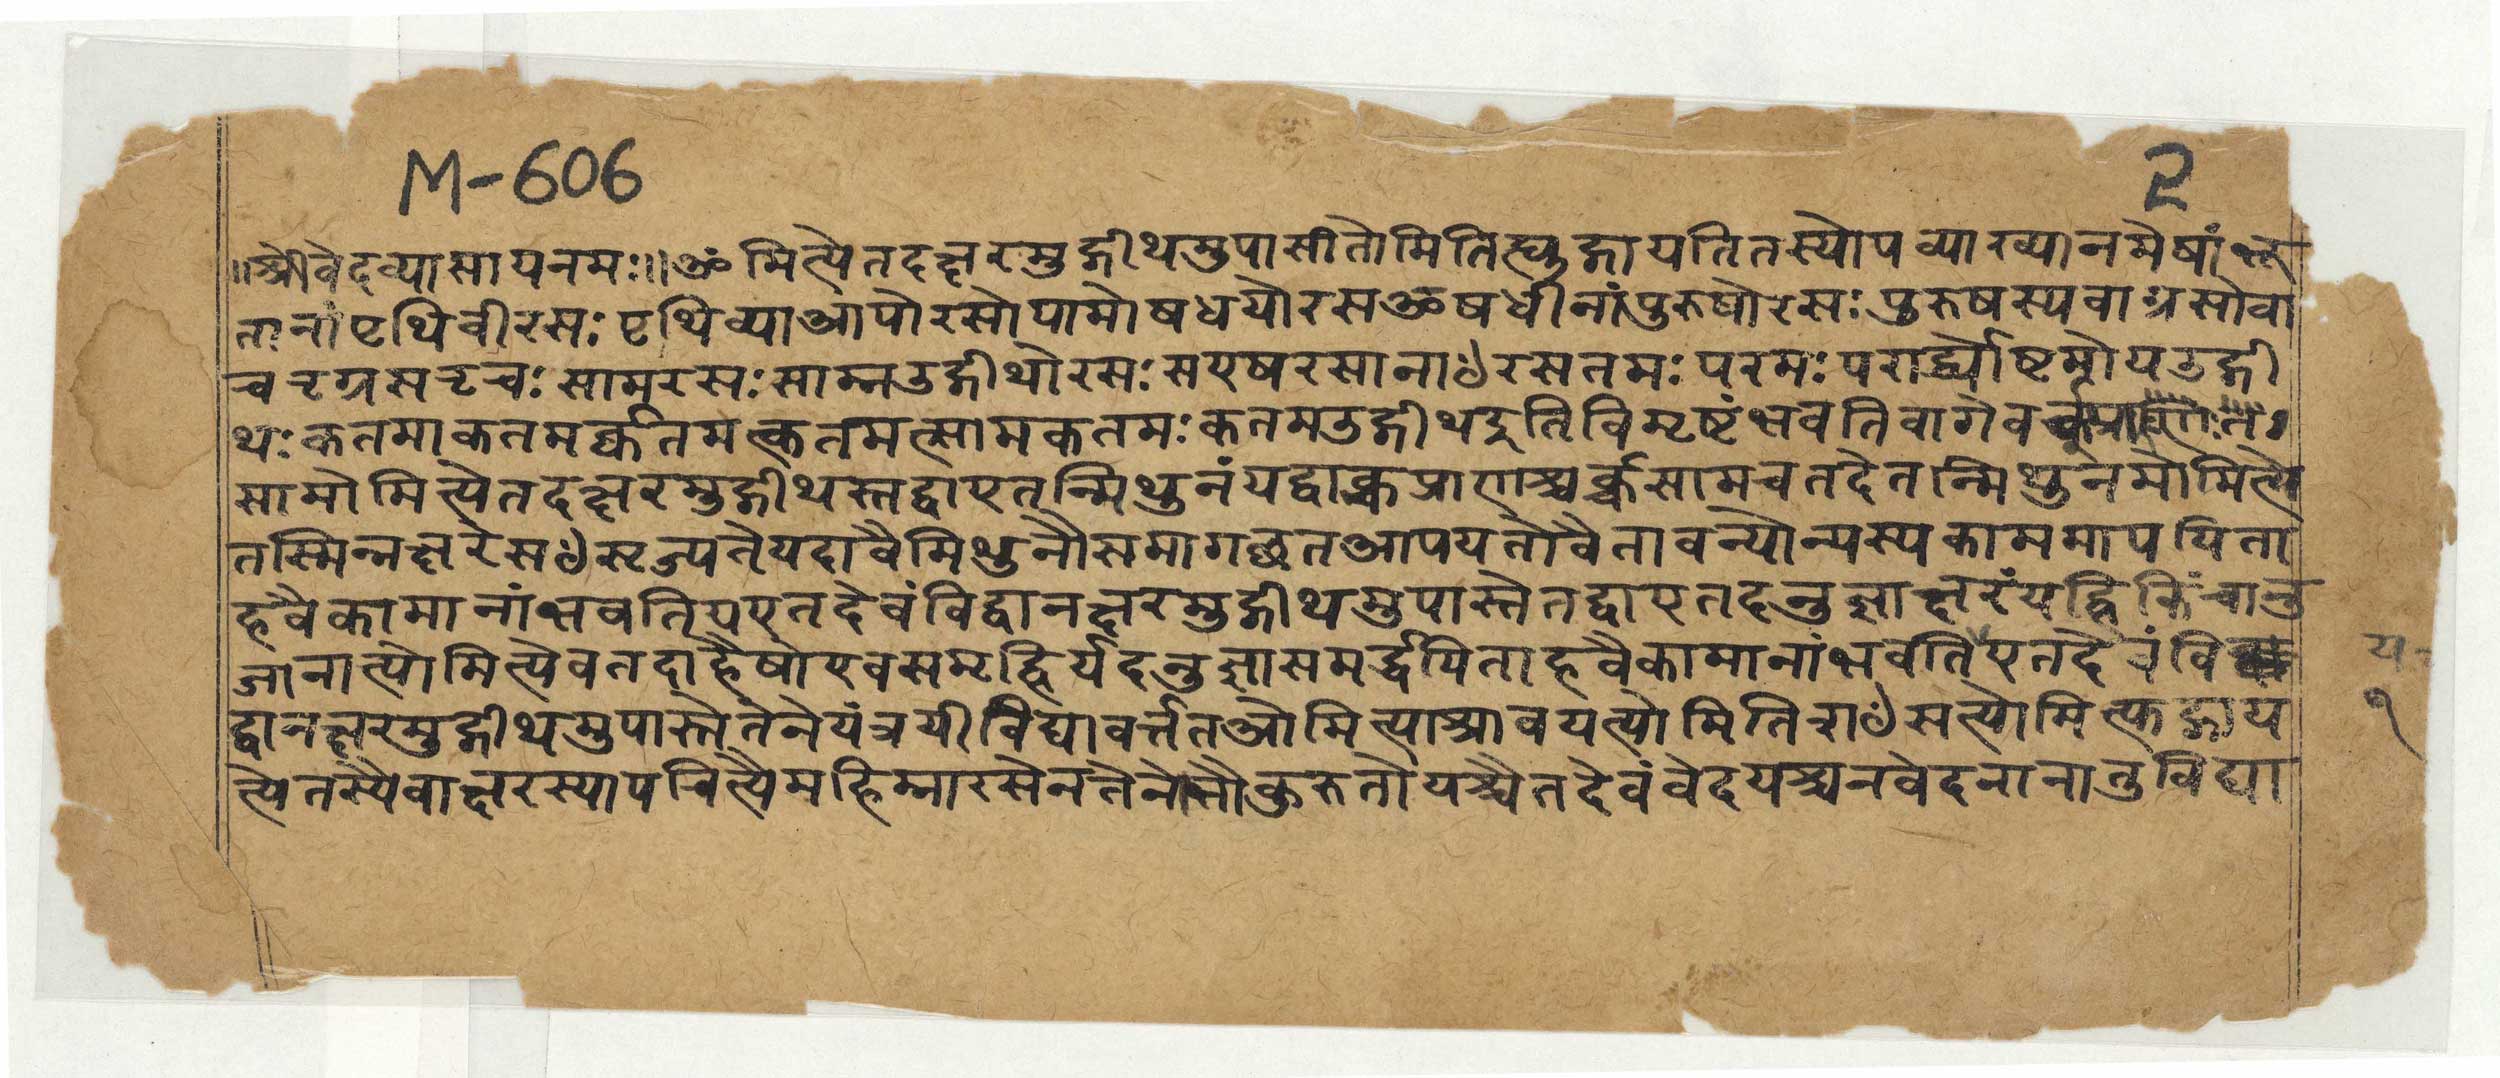 M-606
2
॥श्रीवेदव्यासायनमः॥ॐमित्येतदक्षरमुद्गीथमुपासीतोमितिह्युद्गायतितस्योपव्याख्यानमेषांभू
तानांपृथिवीरसःपृथिव्याआपोरसोपामोषधयोरसॐषधीनांपुरुषोरसःपुरुषस्यवाग्रसोवा
चऋग्रसऋचःसामरसःसाम्नउद्गीथोरसःसएषरसानाꣳरसतमःपरमःपरार्द्ध्योष्टमोयउद्गी
थःकतमाकतमर्क्कतमत्कतमत्सामकतमःकतमउद्गीथइतिविमृष्टंभवतिवागेवर्क्प्राणः
सामोमित्येतदक्षरमुद्गीथस्तद्वाएतन्मिथुनंयद्वाक्चप्राणश्चर्क्चसामचतदेतन्मिथुनमोमित्ये
तस्मिन्नक्षरेसꣳसृज्यतेयदावैमिथुनौसमागच्छतआपयतोवैतावन्योन्यस्यकाममापयिता
हवैकामानांभवतियएतदेवंविद्वानक्षरमुद्गीथमुपास्तेतद्वाएतदनुज्ञाक्षरंयद्धिकिंचानु
जानात्योमित्येवतदाहैषोएवसमृद्धिर्यदनुज्ञासमर्द्धयिताहवैकामानांभवतिएतदेवंवि
य
द्वानक्षरमुद्गीथमुपास्तेतेनेयंत्रयीविद्यावर्त्ततओमित्याश्रावयत्योमितिशꣳसत्योमित्युद्गाय
१
त्येतस्यैवाक्षरस्यापचित्यैमहिम्नारसेनतेनोभौकुरुतोयश्चैतदेवंवेदयश्चनवेदनानातुविद्या